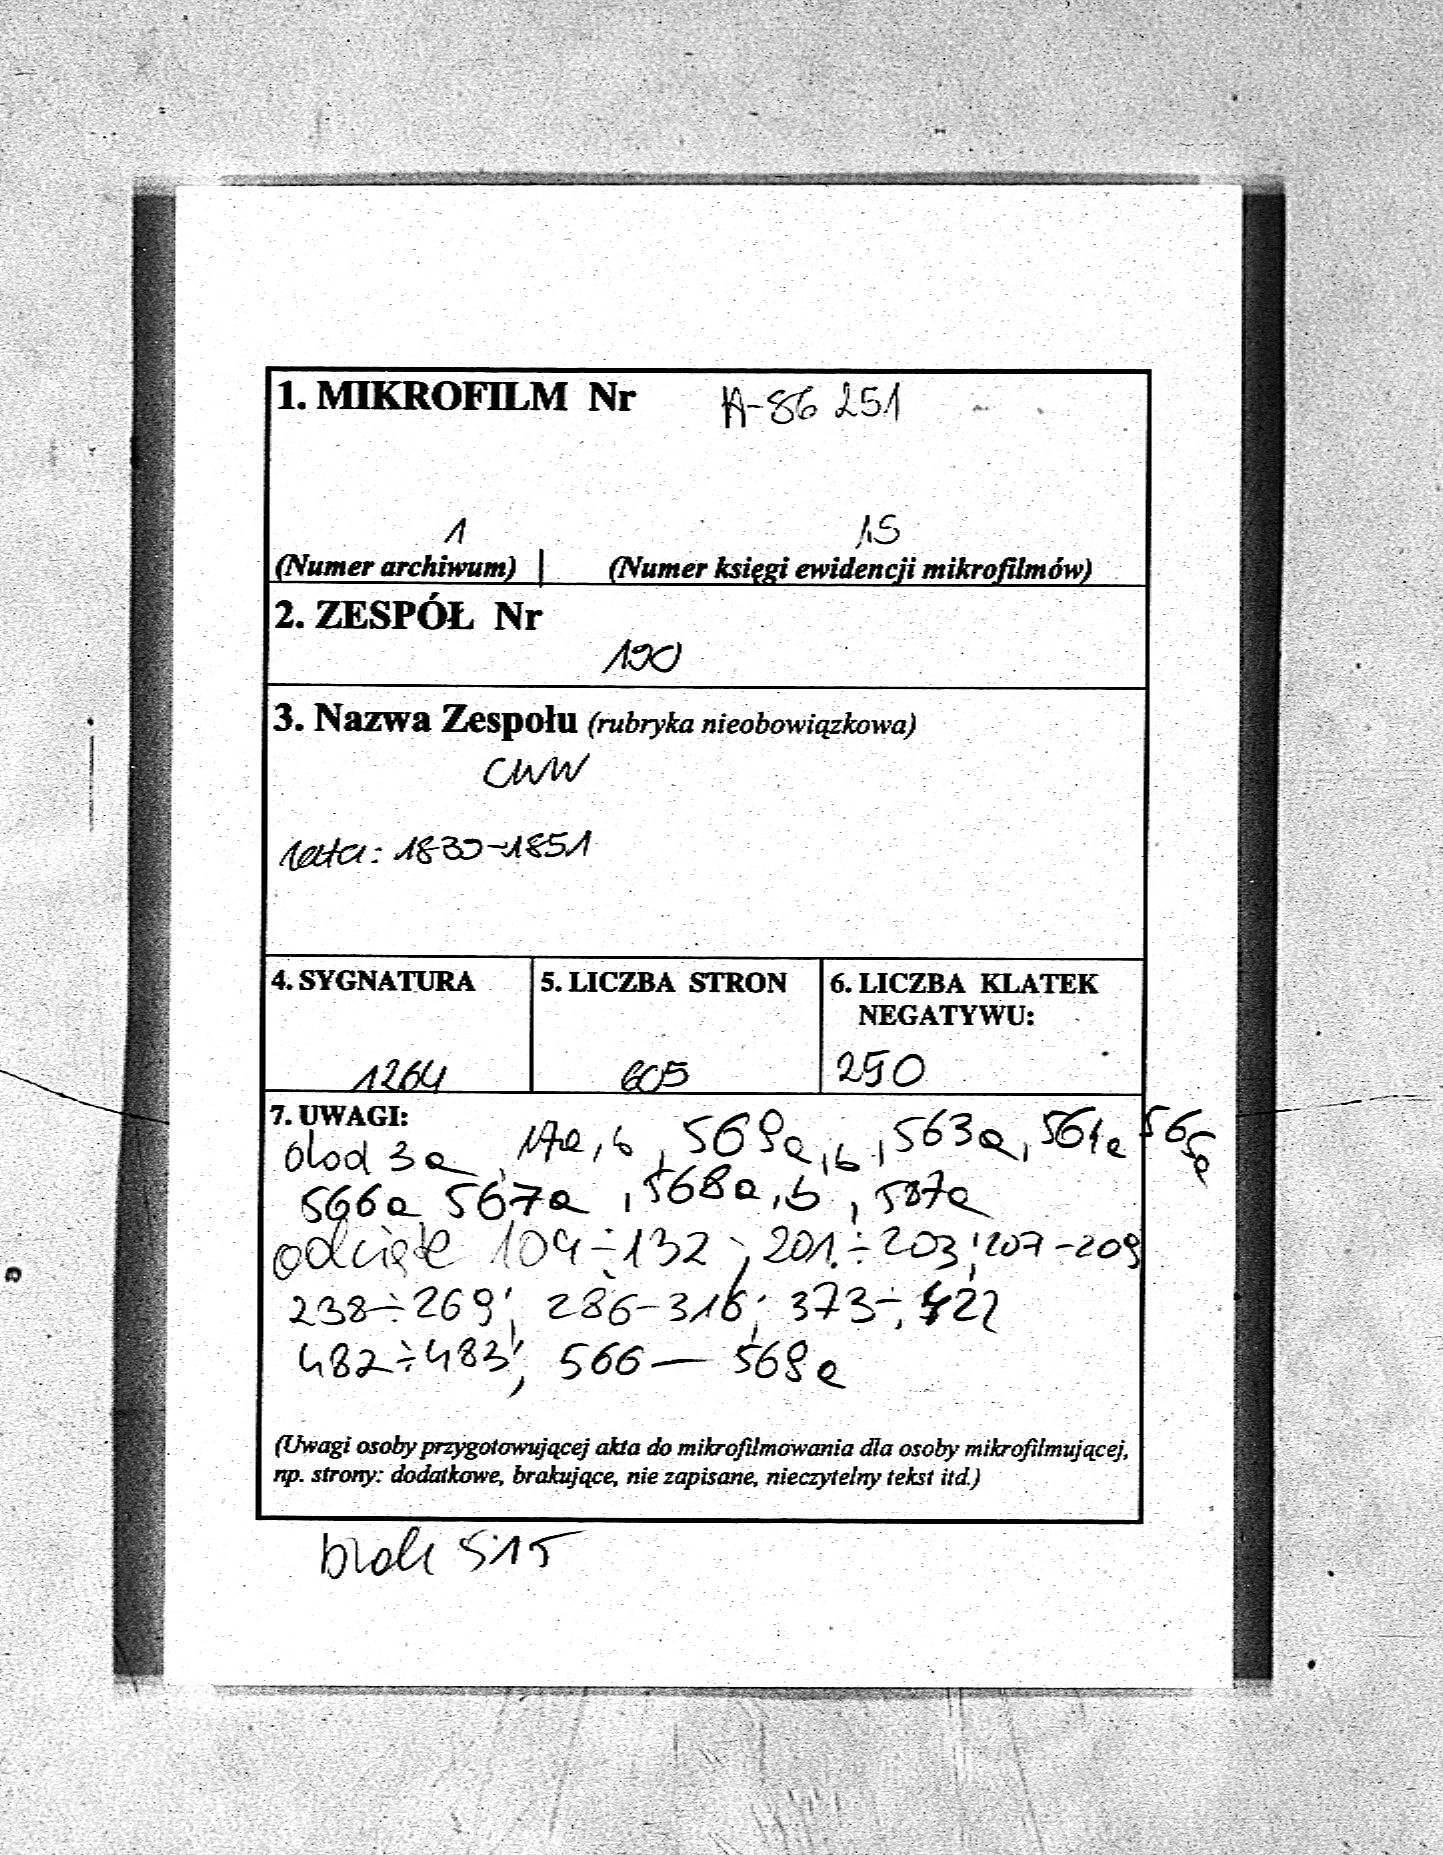 1. MIKROFILM Nr A-86 251
1 15
(Numer archiwum) | (Numer księgi ewidencji mikrofilmów)
2. ZESPÓŁ Nr
190
3. Nazwa Zespołu (rubryka nieobowiązkowa)
CWW
lata: 1830-1851
4. SYGNATURA
1264
5. LICZBA STRON
605
6. LICZBA KLATEK
NEGATYWU:
290
7. UWAGI:
dod 3a, 17a,b, 569a,b, 563a, 564a 565a
566a 567a, 568a,b, 587a
odcięte 104÷132; 201÷203; 207-209
238÷269; 286-316; 373÷422
482÷483; 566—569a
(Uwagi osoby przygotowującej akta do mikrofilmowania dla osoby mikrofilmującej,
np. strony: dodatkowe, brakujące, nie zapisane, nieczytelny tekst itd.)
brak 515